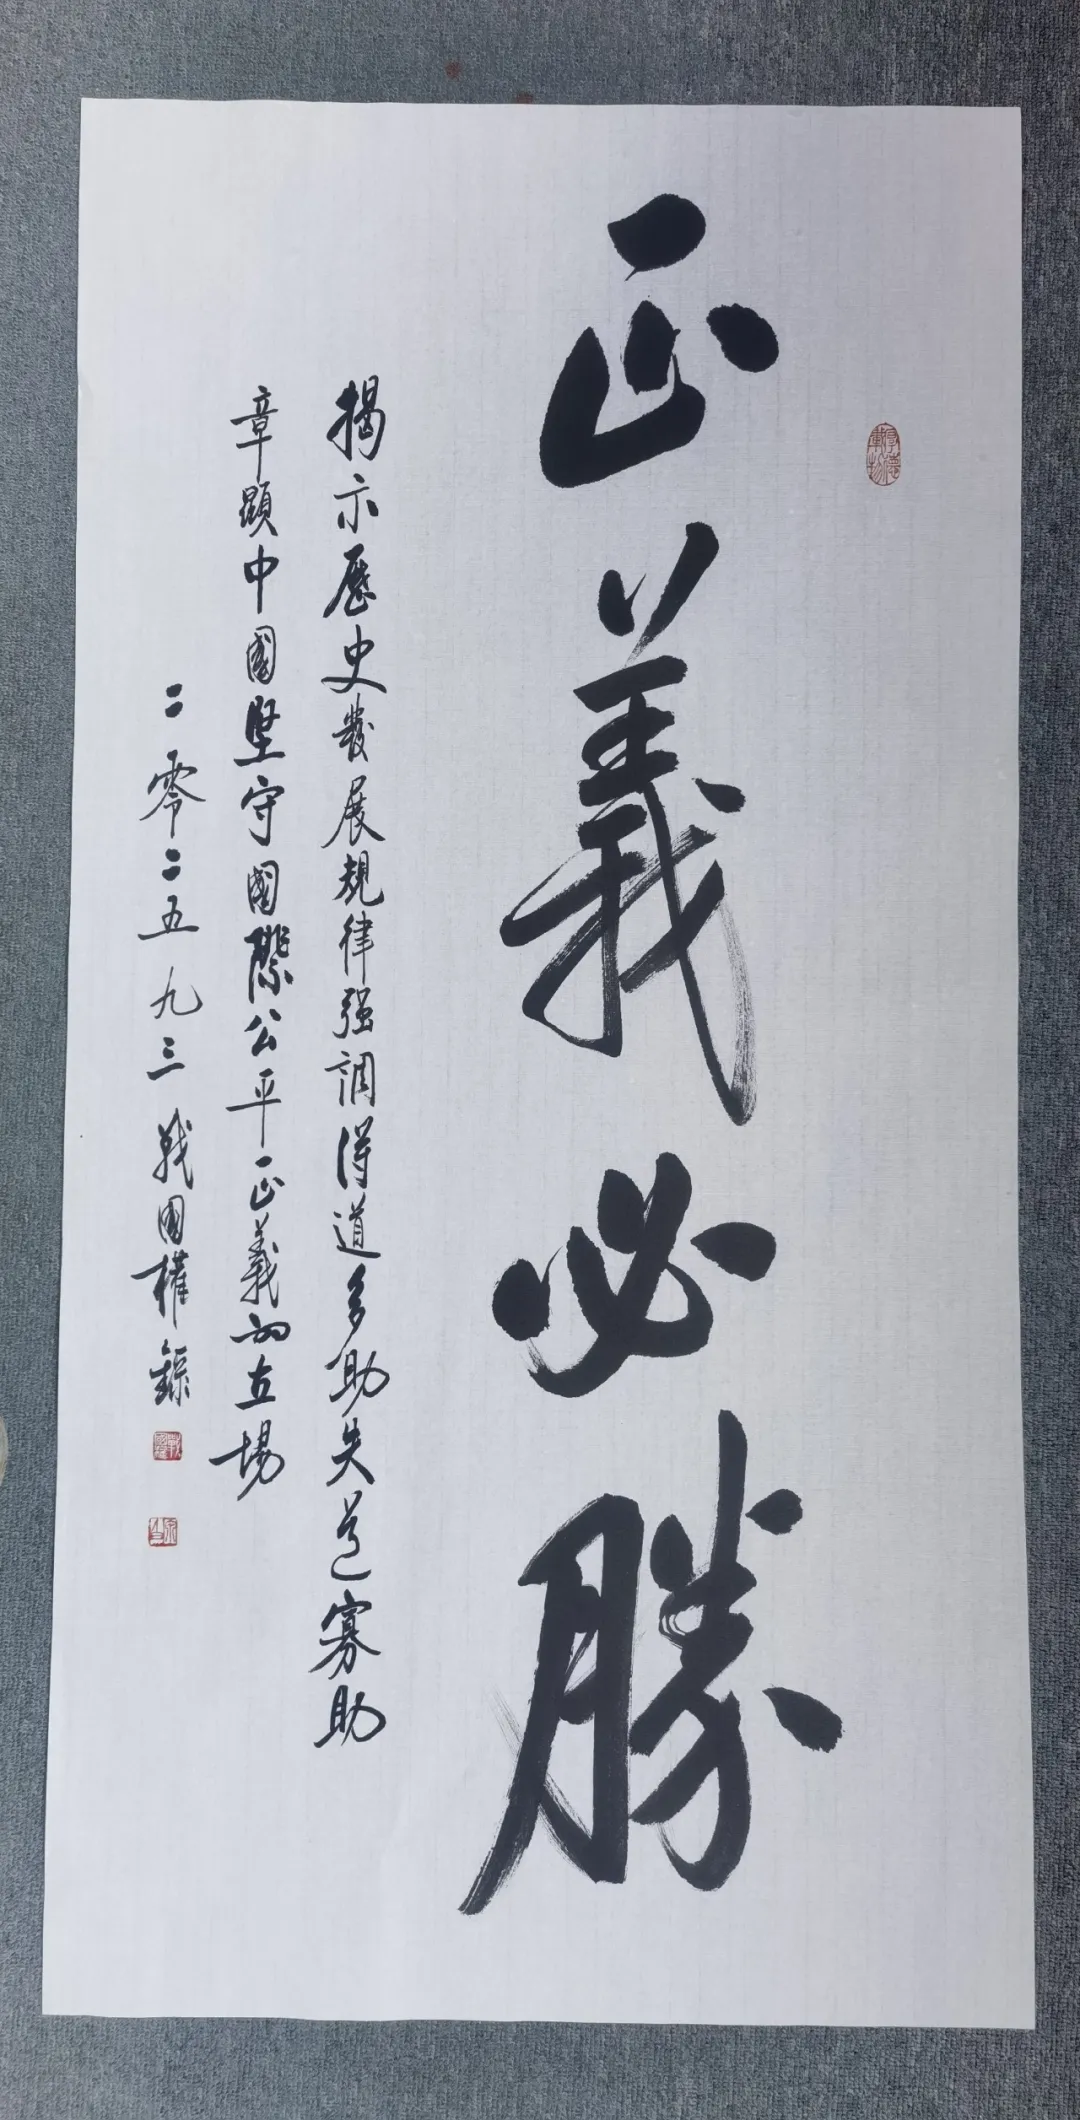 正義必勝
揭示歷史發展規律强調得道多助失道寡助
章顯中國堅守國際公平正義的立場
二零二五九三戰國權録
厚德載物